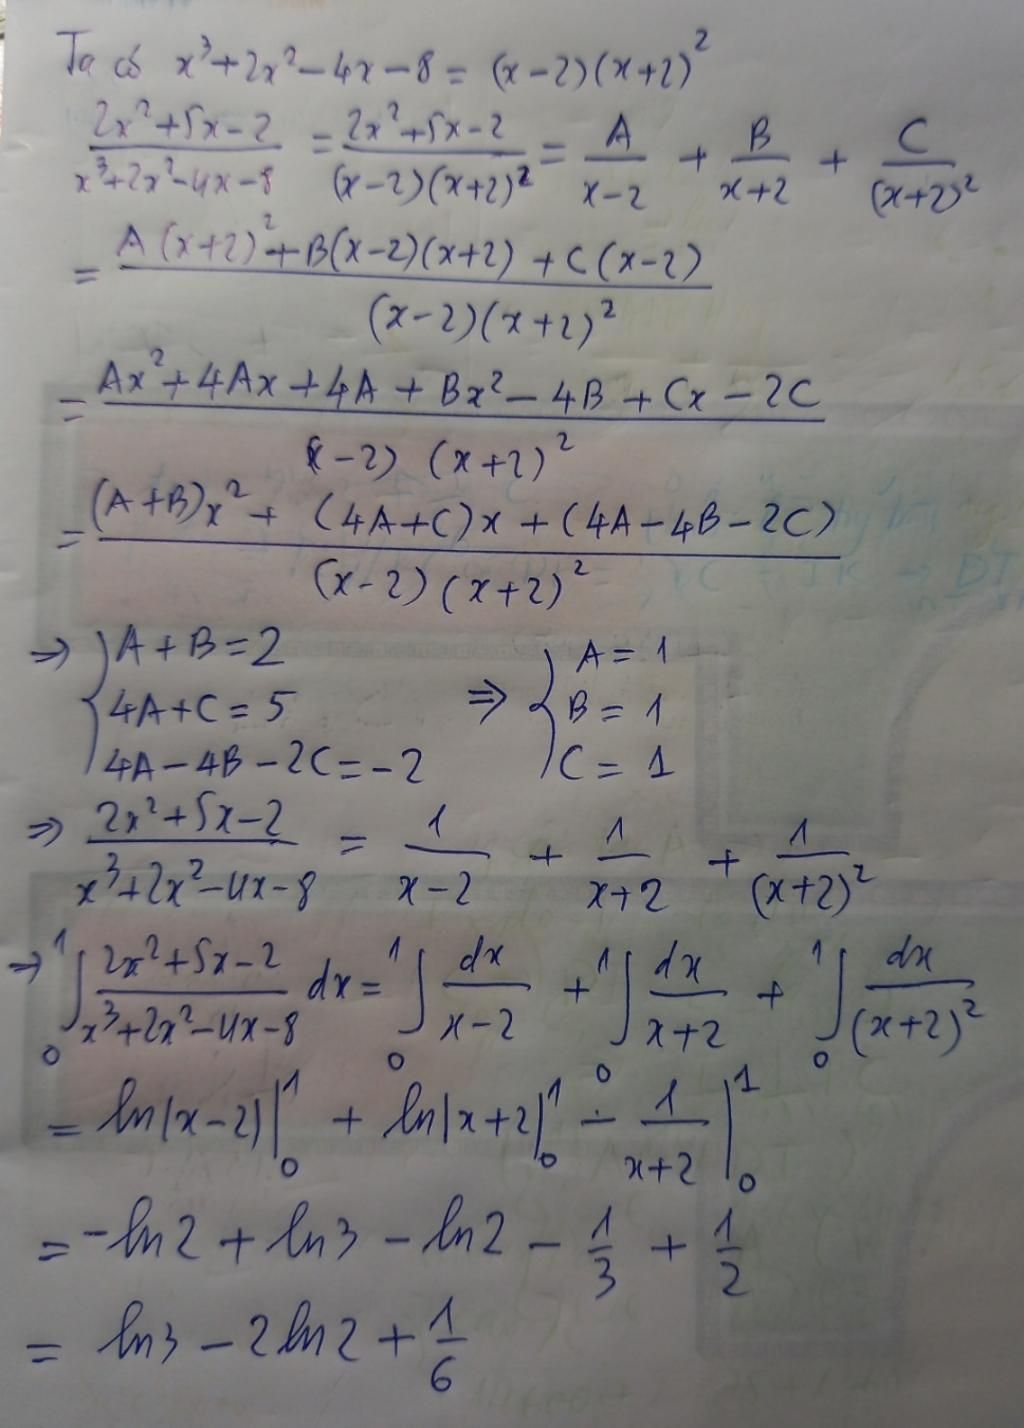 Ta có x³+2x²-4x-8 = (x-2)(x+2)²
(2x²+5x-2)/(x³+2x²-4x-8) = (2x²+5x-2)/((x-2)(x+2)²) = A/(x-2) + B/(x+2) + C/(x+2)²
= (A(x+2)²+B(x-2)(x+2)+C(x-2))/((x-2)(x+2)²)
= (Ax²+4Ax+4A+Bx²-4B+Cx-2C)/((x-2)(x+2)²)
= ((A+B)x²+(4A+C)x+(4A-4B-2C))/((x-2)(x+2)²)
⇒ { A+B=2 ⇒ { A=1
4A+C=5 B=1
4A-4B-2C=-2 C=1
⇒ (2x²+5x-2)/(x³+2x²-4x-8) = 1/(x-2) + 1/(x+2) + 1/(x+2)²
→ ∫₀¹ (2x²+5x-2)/(x³+2x²-4x-8) dx = ∫₀¹ dx/(x-2) + ∫₀¹ dx/(x+2) + ∫₀¹ dx/(x+2)²
= ln|x-2| |₀¹ + ln|x+2| |₀¹ - 1/(x+2) |₀¹
= -ln2 + ln3 - ln2 - 1/3 + 1/2
= ln3 - 2ln2 + 1/6